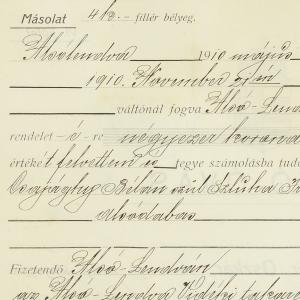 Másolat 4 kr. - fillér bélyeg.
Alsólendva 1910 május
1910. November
váltónál fogva Alsó-Lend
rendelet - é - re négyezer korona
értékét felvettem és tegye számolásba tud
Csajághy Bélán
alsódabas
Fizetendő Alsó-Lendván
az Alsó-Lendva Vidéki takar